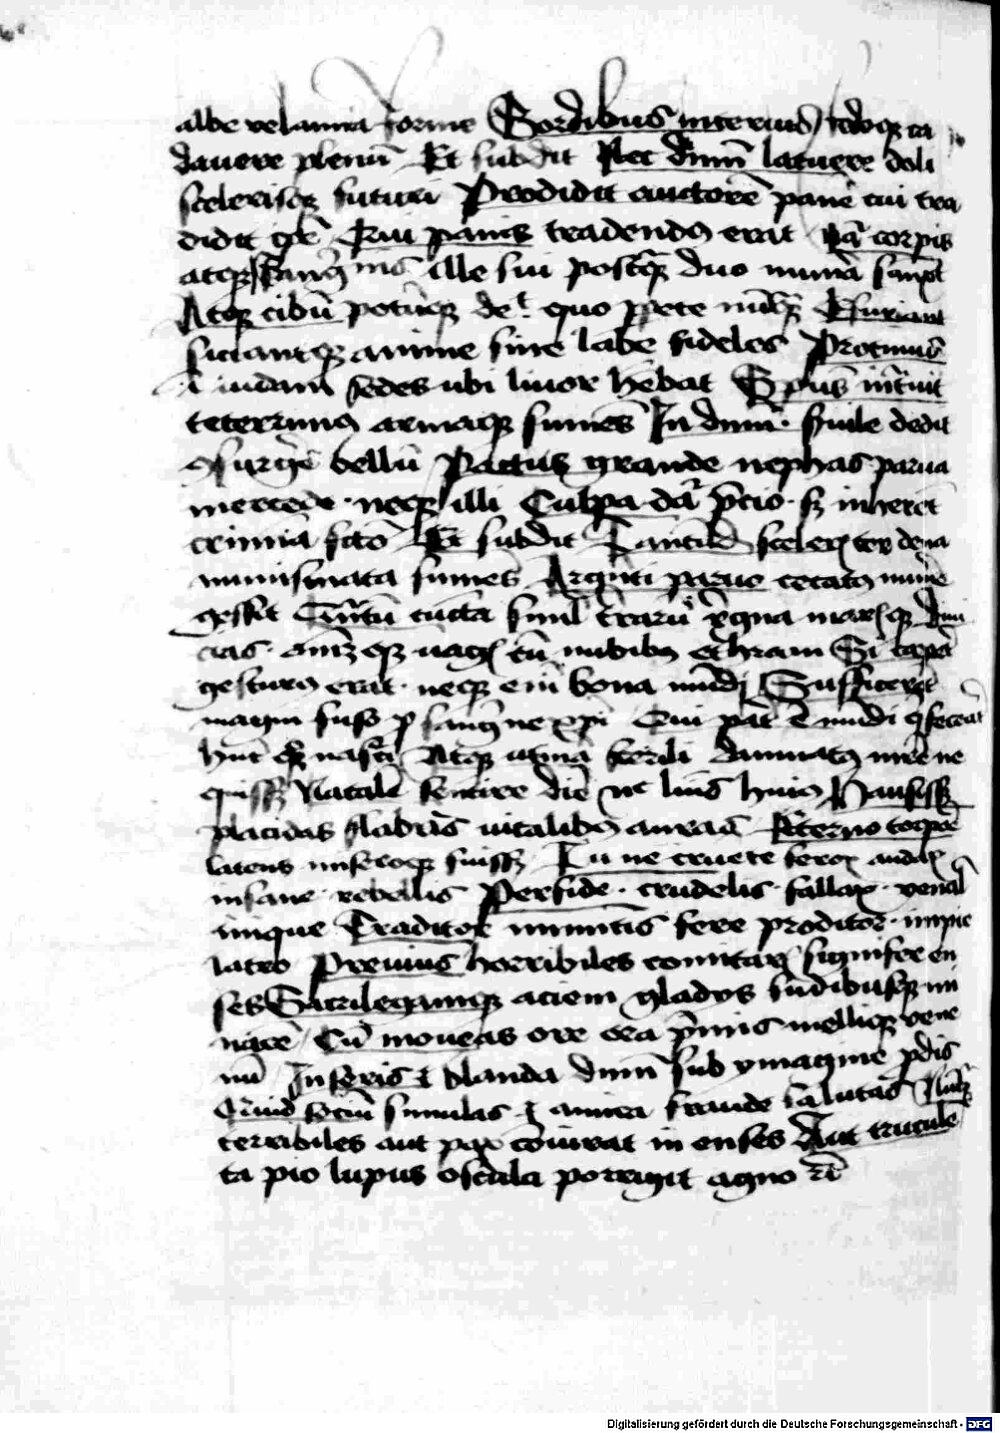 albe velamina forme Sordibus interius tetroque ca
davere plenum Et subdit Nec dnm latuere doli
scelerisque futuri Prodidit auctorem panem cui tra
didit ipse Qui panis tradendus erat Nam corpus
atque sanguinis ille sui postquam duo munera sanxit
Atque cibum potumque dedit quo perpete nunquam Esuriant
sitiantque anime sine labe fideles Protinus
in iudam sedes ubi livor habebat Spiritus intravit
teterrimus armaque sumens In dnm. Simile dedit
consurgere bellum Pactus grande nephas parva
mercede. neque illi Culpa datur precio. sed inheret
crimina facto Et subdit Tantumdem sceleris ter dena
numismata sumens Argenti parvo cecatus munere
gessit Quantum cuncta simul terrarum regna marisque divi
cias. omnisque vagis cum nubibus ethram Si capta
gesturus erat. neque enim bona mundi Sufficerent
magni fuso pro sanguine xpi Qui patrem et mundi que fecerat
hunc quoque nasci Atque utinam sterili damnatus matre ne
quisset Natalem sentire diem nec luminis huius Hausisset
placidas flabris vitalibus auras Eterno torpore
latens misero que fuisset Tu ne cruente ferox audax
insane rebellis Perfide. crudelis. fallax. venalis
inique Traditor inmitis fere proditor. impie
latro Previus horribiles comitaris signifer en
ses Sacrilegamque aciem gladiis sudibusque mi
nacem Cum moveas ore ora premis mellique vene
num Inseris et blanda dnm sub ymagine prodis
Quid socium simulas et amica fraude salutas Nunquam
terribiles aut pax coniurat in enses Aut truculen
ta pio lupus oscula porrigit agno